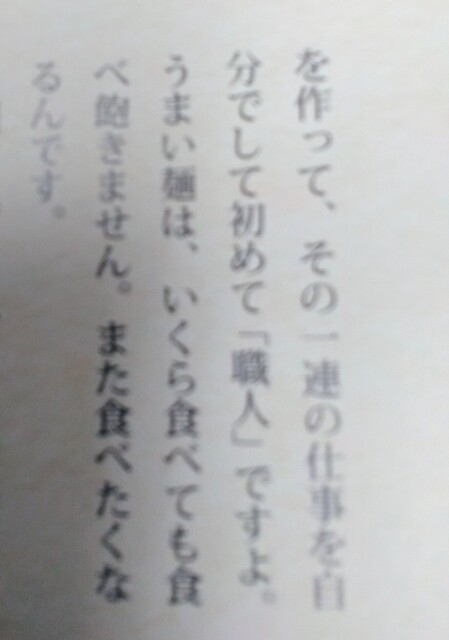 を作って、その一連の仕事を自
分でして初めて「職人」ですよ。
うまい麺は、いくら食べても食
べ飽きません。また食べたくな
るんです。